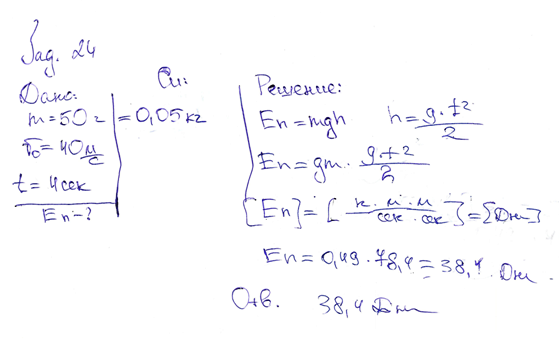 Зад. 24
Дано:
m = 50 г
v₀ = 40 м/с
t = 4 сек
Eп - ?
Си:
= 0,05 кг
Решение:
Eп = mgh h = g·t²/2
Eп = gm · g·t²/2
[Eп] = [к·м·м/сек·сек] = [Дж]
Eп = 0,49 · 78,4 = 38,4 Дж
Отв. 38,4 Дж